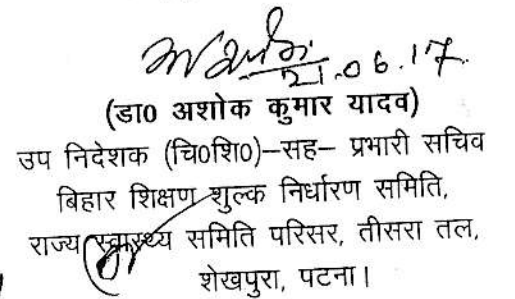 21.06.17
(डा0 अशोक कुमार यादव)
उप निदेशक (चि0शि0)–सह– प्रभारी सचिव
बिहार शिक्षण शुल्क निर्धारण समिति,
राज्य स्वास्थ्य समिति परिसर, तीसरा तल,
शेखपुरा, पटना।